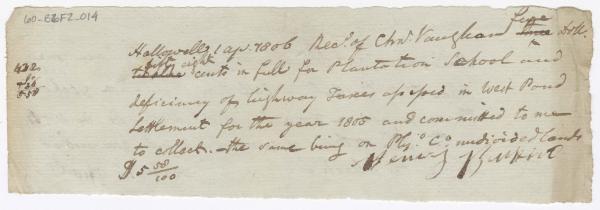 60-B6F2-014
five
Hallowell 1 apr. 1806 Recd. of Chs. Vaughan three doll.
fifty eight
twelve cents in full for Plantation School and
deficiency of highway Taxes assessed in West Pond
settlement for the year 1805 and committed to me
to collect. the same being on Ply.o Co. undivided lands
$5 58/100
432
1.26
5.58